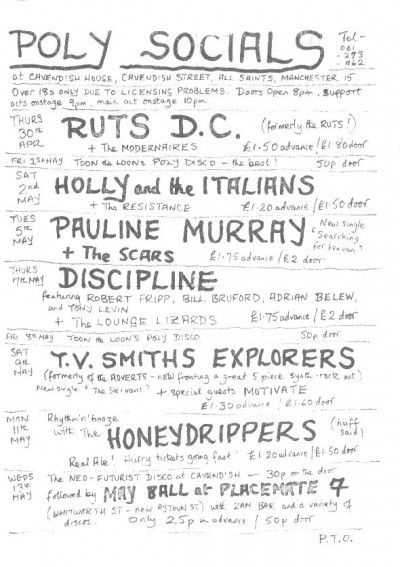 POLY SOCIALS
Tel-
061
-273
1162
at CAVENDISH HOUSE, CAVENDISH STREET, ALL SAINTS, MANCHESTER 15.
Over 18s ONLY DUE TO LICENSING PROBLEMS. Doors Open 8pm, support
acts onstage 9pm, main act onstage 10pm.
THURS
30th
APR
RUTS D.C. (formerly the RUTS!)
+ The MODERNAIRES £1.50 advance/£1.80 door
FRI 1st MAY TOON the LOON'S POLY DISCO - the best! 50p door
SAT
2nd
MAY
HOLLY and the ITALIANS
+ The RESISTANCE £1.20 advance/£1.50 door
TUES
5th
MAY
PAULINE MURRAY
New single
'Searching
for heaven'
+ The SCARS £1.75 advance/£2 door
THURS
7th MAY
DISCIPLINE
featuring ROBERT FRIPP, BILL BRUFORD, ADRIAN BELEW,
and TONY LEVIN
+ The LOUNGE LIZARDS £1.75 advance/£2 door
FRI 8th MAY TOON the LOON'S POLY DISCO 50p door
SAT
9th
MAY
T.V. SMITHS EXPLORERS
(formerly of the ADVERTS - now fronting a great 5 piece synth-rock act)
New single 'The Servant' + special guests MOTIVATE
£1.30 advance/£1.60 door
MON
11th
MAY
Rhythm'n'booze
with The HONEYDRIPPERS (nuff
said)
Real Ale! Hurry tickets going fast! £1.20 advance/£1.50 door
WEDS
13th
MAY
The NEO-FUTURIST DISCO at CAVENDISH - 30p on the door
followed by MAY BALL at PLACEMATE 7
(WHITWORTH ST - near AYTOUN ST) with 2AM BAR and a variety of
discos. Only 25p in advance / 50p door
P.T.O.